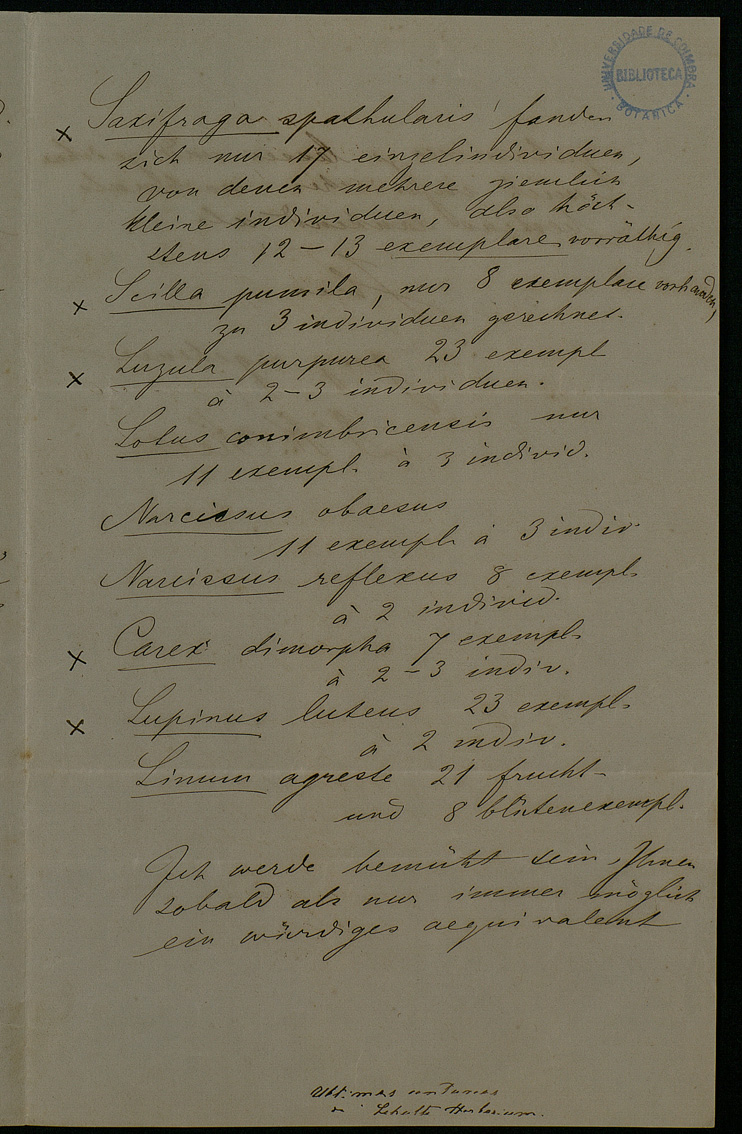 UNIVERSIDADE DE COIMBRA
BIBLIOTECA
BOTANICA
x Saxifraga spathularis fanden
sich nur 17 einzelindividuen,
von denen mehrere ziemlich
kleine individuen, also höch-
stens 12-13 exemplare vorräthig.
x Scilla pumila, nur 8 exemplare vorhanden,
zu 3 individuen gerechnet.
x Luzula purpurea 23 exempl
à 2-3 individuen.
Lotus conimbricensis nur
11 exempl. à 3 individ.
Narcissus obaesus
11 exempl. à 3 indiv.
Narcissus reflexus 8 exempl.
à 2 individ.
x Carex dimorpha 7 exempl.
à 2-3 indiv.
x Lupinus luteus 23 exempl.
à 2 indiv.
Linum agreste 21 frucht-
und 8 blütenexempl.
Ich werde bemüht sein, Ihnen
sobald als nur immer möglich
ein würdiges aequivalent
Herbarium.